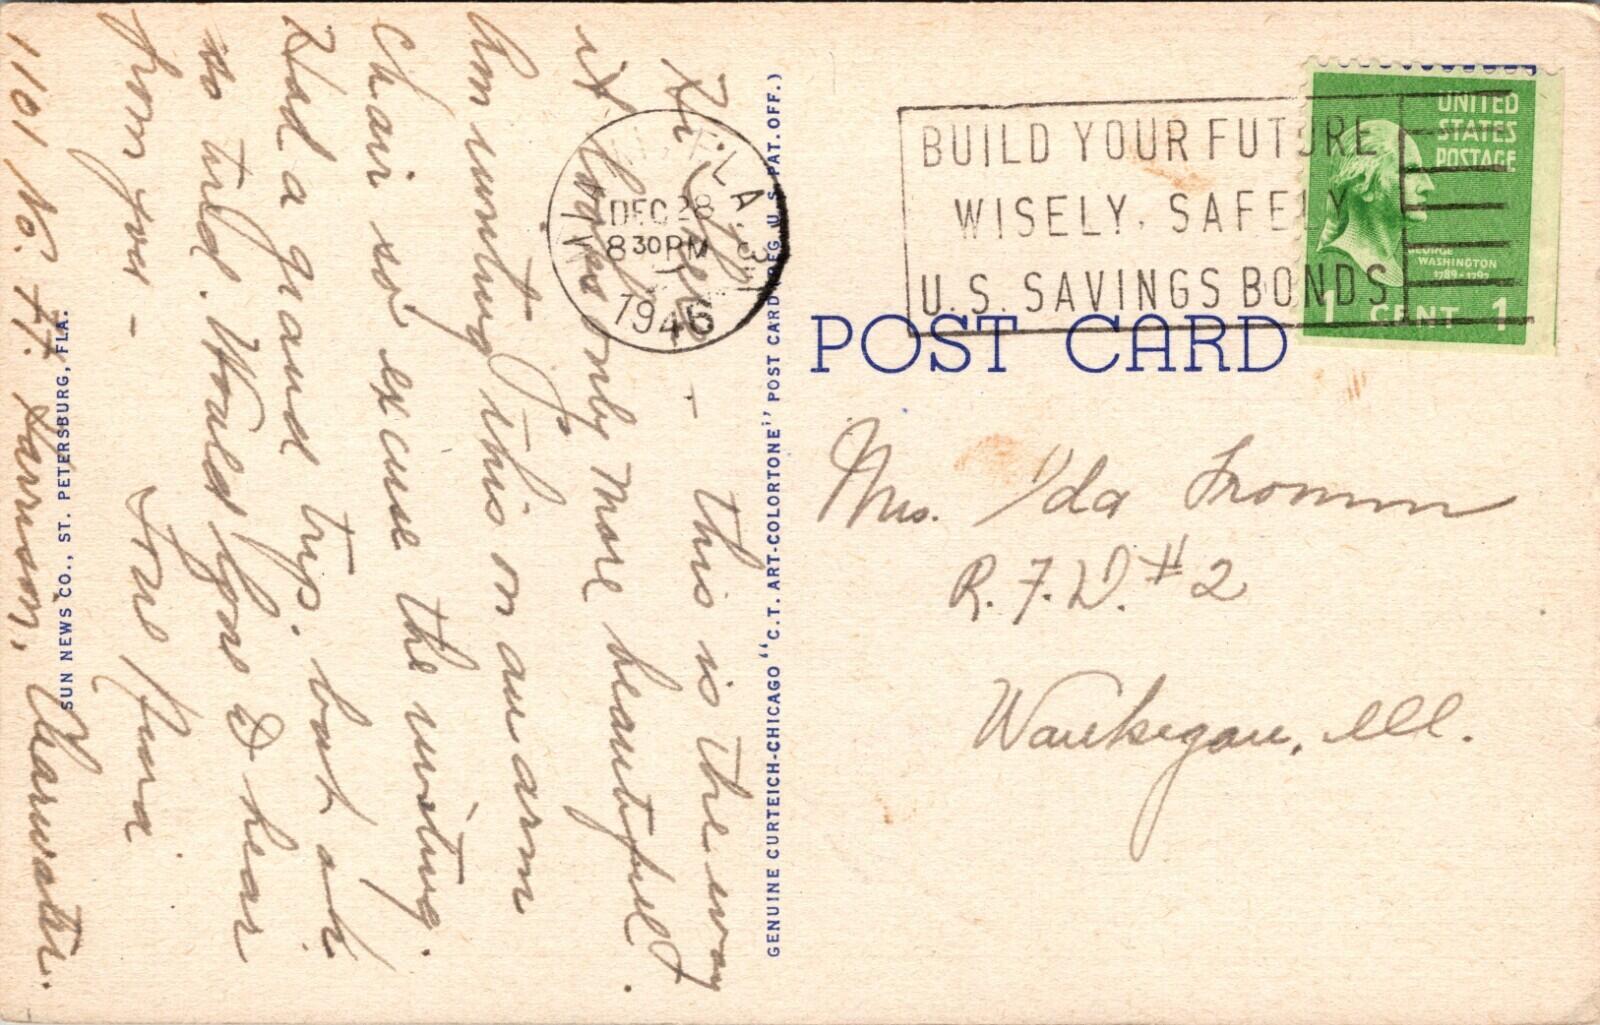 Hi There - this is the way
it looks only more beautiful.
Am writing this on an arm
chair so excuse the writing.
Had a grand trip, but oh
so tired. Would love to hear
from you -
Love
1101 No. Ft. Harrison, Clearwater.
SUN NEWS CO., ST. PETERSBURG, FLA.
GENUINE CURTEICH-CHICAGO "C.T. ART-COLORTONE" POST CARD (REG. U.S. PAT. OFF.)
FLA.
DEC 28
8 30 PM
1946
BUILD YOUR FUTURE
WISELY, SAFELY
U.S. SAVINGS BONDS
UNITED
STATES
POSTAGE
GEORGE
WASHINGTON
1789-1797
1 CENT 1
POST CARD
Mrs. Ida Fromm
R.F.D. #2
Waukegan, Ill.